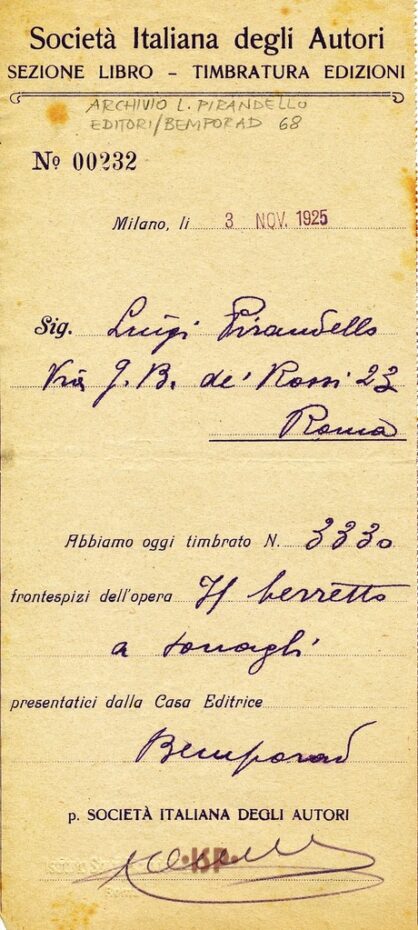 Società Italiana degli Autori
SEZIONE LIBRO – TIMBRATURA EDIZIONI
ARCHIVIO L. PIRANDELLO
EDITORI/BEMPORAD 68
Nº 00232
Milano, li 3 NOV. 1925
Sig. Luigi Pirandello
Via G. B. de' Rossi 23
Roma
Abbiamo oggi timbrato N. 3330
frontespizi dell'opera Il berretto
a sonagli
presentatici dalla Casa Editrice
Bemporad
p. SOCIETÀ ITALIANA DEGLI AUTORI
ISP